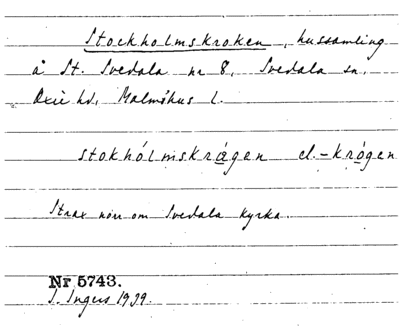 Stockholmskroken, hussamling
å St. Svedala nr 8, Svedala sn,
Oxie hd, Malmöhus l.
stokhólmskrågen el. -krógen
Strax norr om Svedala kyrka.
Nr 5743.
I. Ingers 1939.